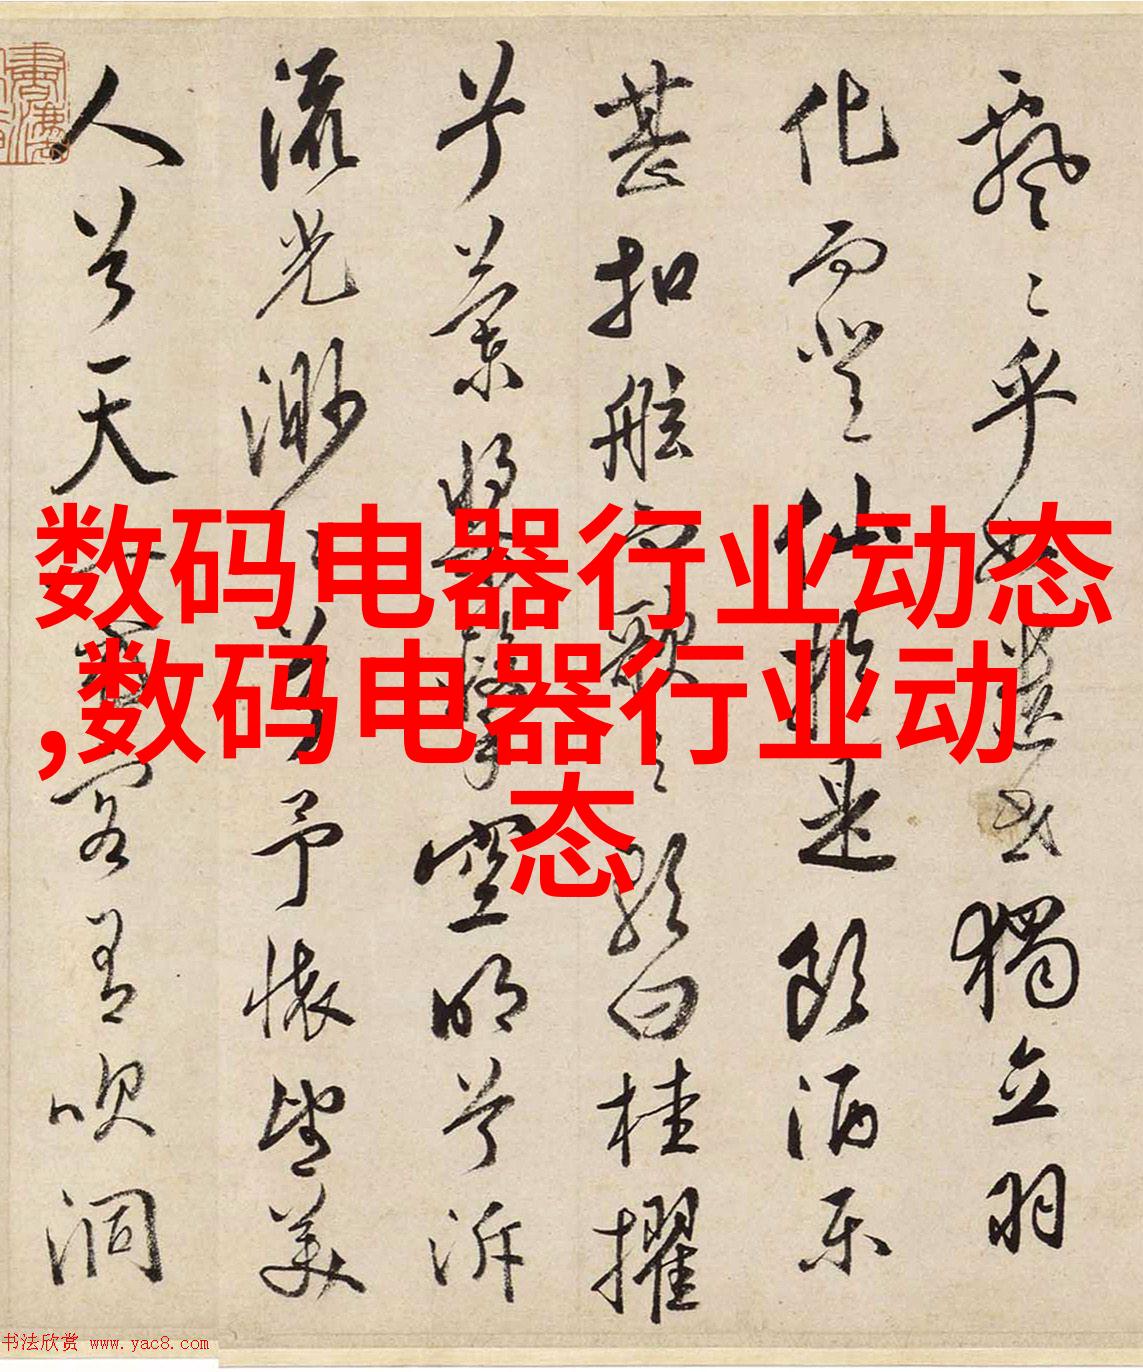 飄〻乎如遺世獨立羽
化而登仙於是飲酒樂
甚扣舷而歌之歌曰桂擢
兮蘭槳擊空明兮泝
流光渺〻兮予懷望美
人兮天一方客有吹洞
数码电器行业动态
,数码电器行业动
态
书法欣赏 www.yac8.com